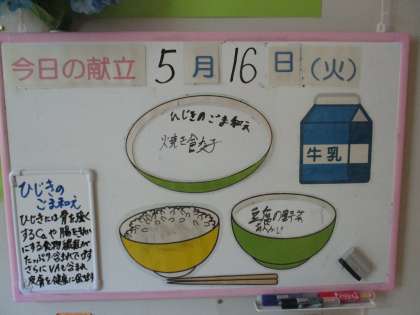 今日の献立 5月16日(火)
ひじきのごま和え
焼き餃子
牛乳
豆腐の野菜
あんかけ
ひじきの
ごま和え
ひじきには骨を強く
するCaや腸をきれい
にする食物繊維が
たっぷり含まれています
さらにVAも含まれ
皮膚を健康に